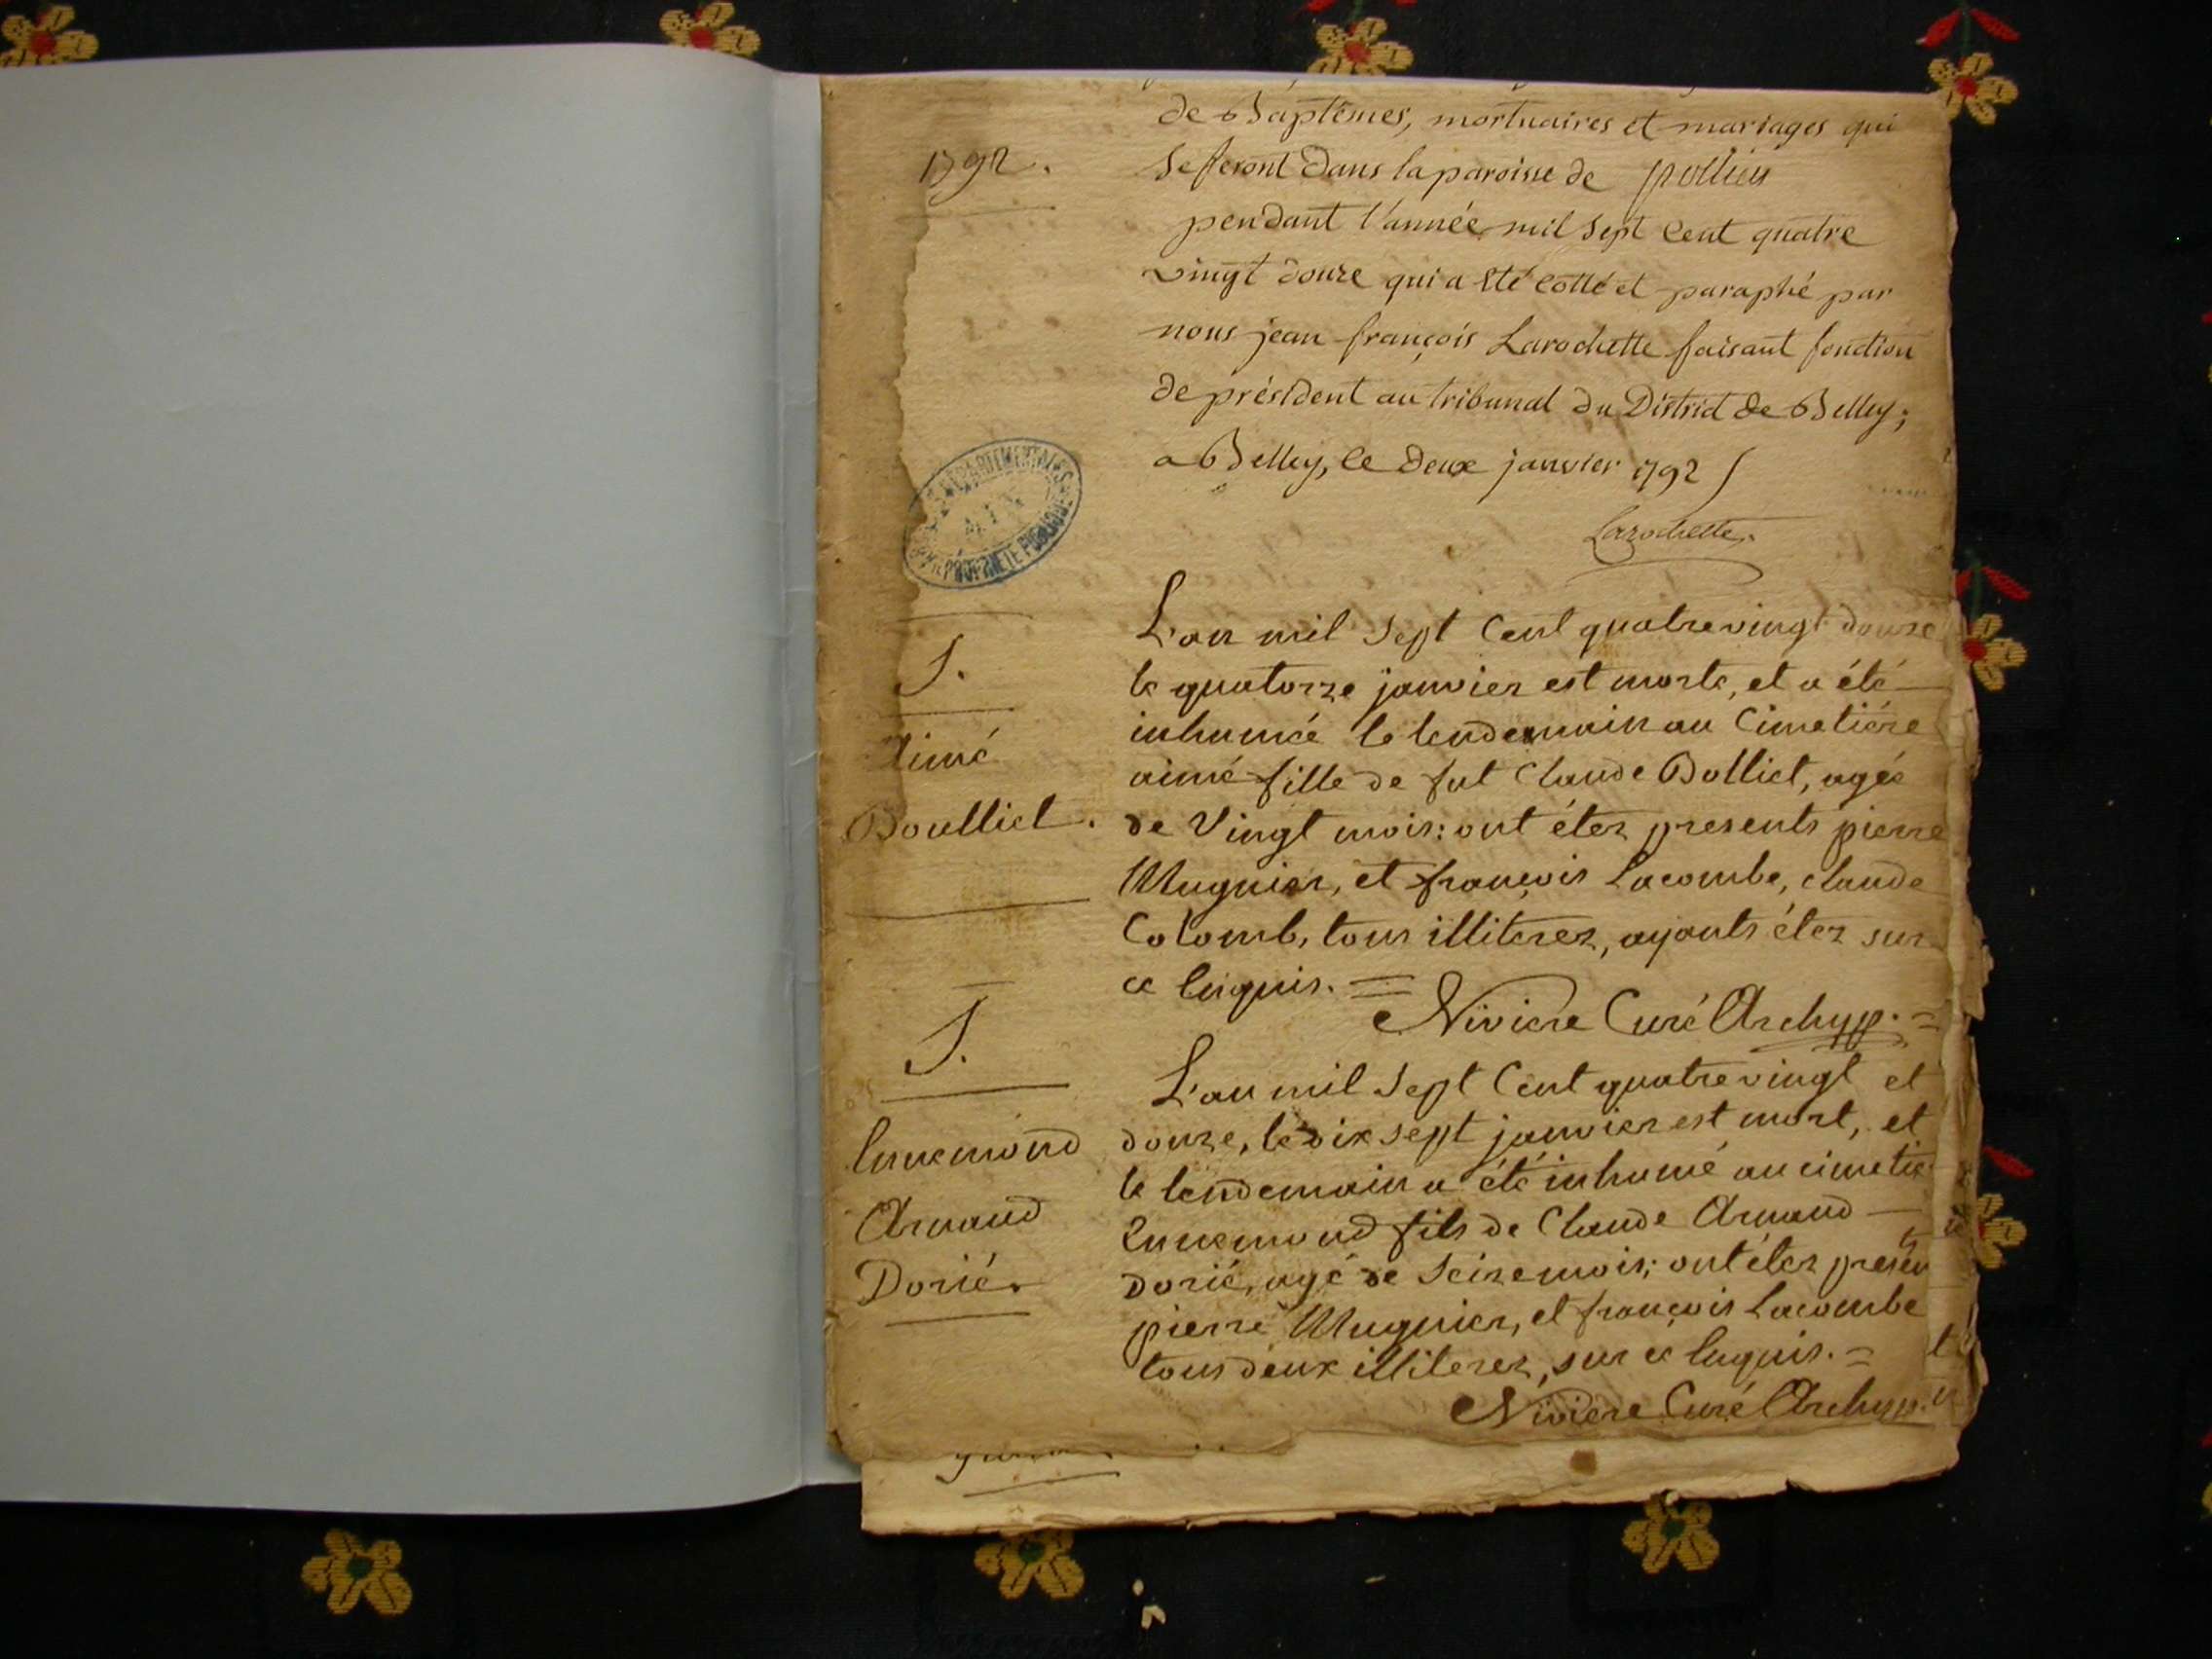 1792.
de Baptêmes, mortuaires et mariages qui
se feront dans la paroisse de pollieu
pendant l'année mil sept cent quatre
vingt douze qui a été cotté et paraphé par
nous jean françois Larochette faisant fonction
de président au tribunal du District de Belley;
a Belley, le deux janvier 1792
Larochette.
DEPARTEMENTALES
AIN
PROPRIETE PUBLIQUE
S.
Aimé
Boulliet.
L'an mil sept cent quatrevingt douze
le quatorze janvier est morte, et a été
inhumée le lendemain au Cimetiére
aimé fille de fut Claude Bolliet, agée
de Vingt mois: ont étez presents pierre
Mugnier, et françois Lacombe, claude
Colomb, tous illiterez, ayants étez sur
ce enquis. =
Niviere Curé Archyp. =
S.
Ennemond
Arnaud
Dorié.
L'an mil sept Cent quatrevingt et
douze, le dix sept janvier est mort, et
le lendemain a été inhumé au cimetie
Ennemond fils de Claude Arnaud
dorié, agé de seize mois; ont étez presen
pierre Mugnier, et françois Lacombe
tous deux illiterez, sur ce enquis. =
Niviere Curé Archyp.